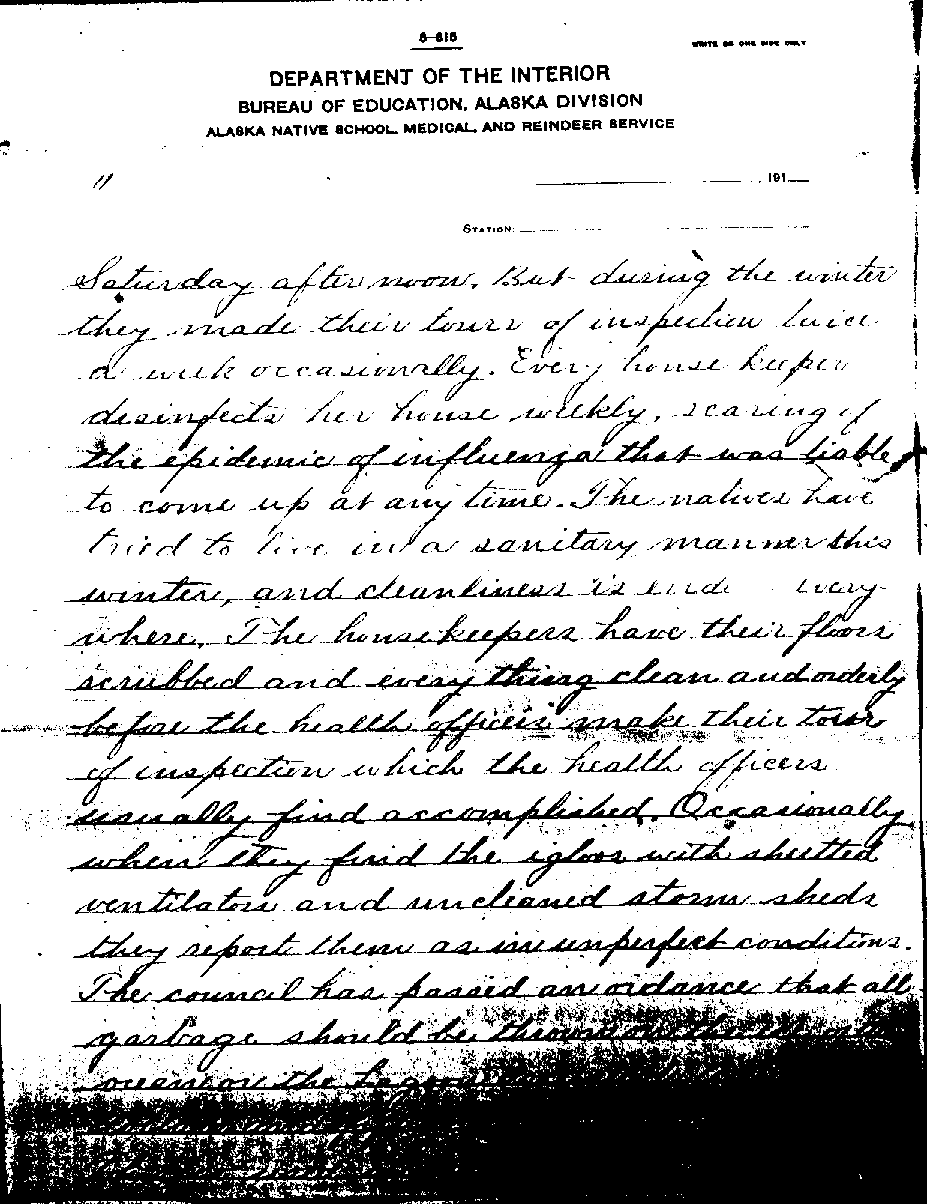 6-615
WRITE ON ONE SIDE ONLY
DEPARTMENT OF THE INTERIOR
BUREAU OF EDUCATION, ALASKA DIVISION
ALASKA NATIVE SCHOOL, MEDICAL, AND REINDEER SERVICE
11
191
STATION:
Saturday afternoon. But during the winter
they made their tours of inspection twice
a week occasionally. Every house keeper
desinfects her house weekly, scaring of
the epidemic of influenza that was liable
to come up at any time. The natives have
tried to live in a sanitary manner this
winter, and cleanliness is every
where. The housekeepers have their floors
scrubbed and every thing clean and orderly
before the health officers make their tour
of inspection which the health officers
usually find accomplished. Occasionally
when they find the igloos with shutted
ventilators and uncleaned storm sheds
they report them as in unperfect conditions.
The council has passed an ordance that all
garbage should be thrown
ocean or the Lagoon